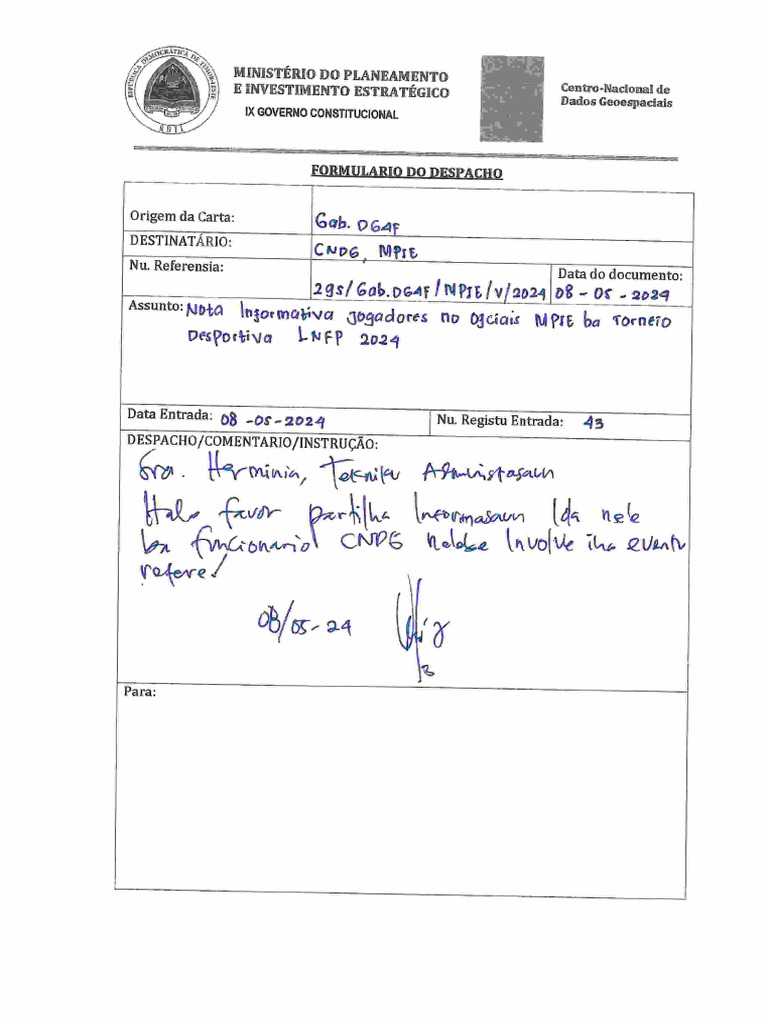 REPÚBLICA DEMOCRÁTICA DE TIMOR-LESTE
RDTL
MINISTÉRIO DO PLANEAMENTO
E INVESTIMENTO ESTRATÉGICO
IX GOVERNO CONSTITUCIONAL
Centro-Nacional de
Dados Geoespaciais
FORMULARIO DO DESPACHO
Origem da Carta: Gab. DGAF
DESTINATÁRIO: CNDG, MPIE
Nu. Referensia: 295/Gab.DGAF/MPIE/V/2024
Data do documento: 08-05-2024
Assunto: Nota Informativa jogadores no ofciais MPIE ba Torneio
Desportiva LNFP 2024
Data Entrada: 08-05-2024 Nu. Registu Entrada: 43
DESPACHO/COMENTARIO/INSTRUÇÃO:
Sra. Herminia, Tekniku Administasaun
Halo favor partilha Informasaun Ida ne'e
ba funcionario CNDG Nebbe Involve iha eventu
refere!
08/05-24
Para: